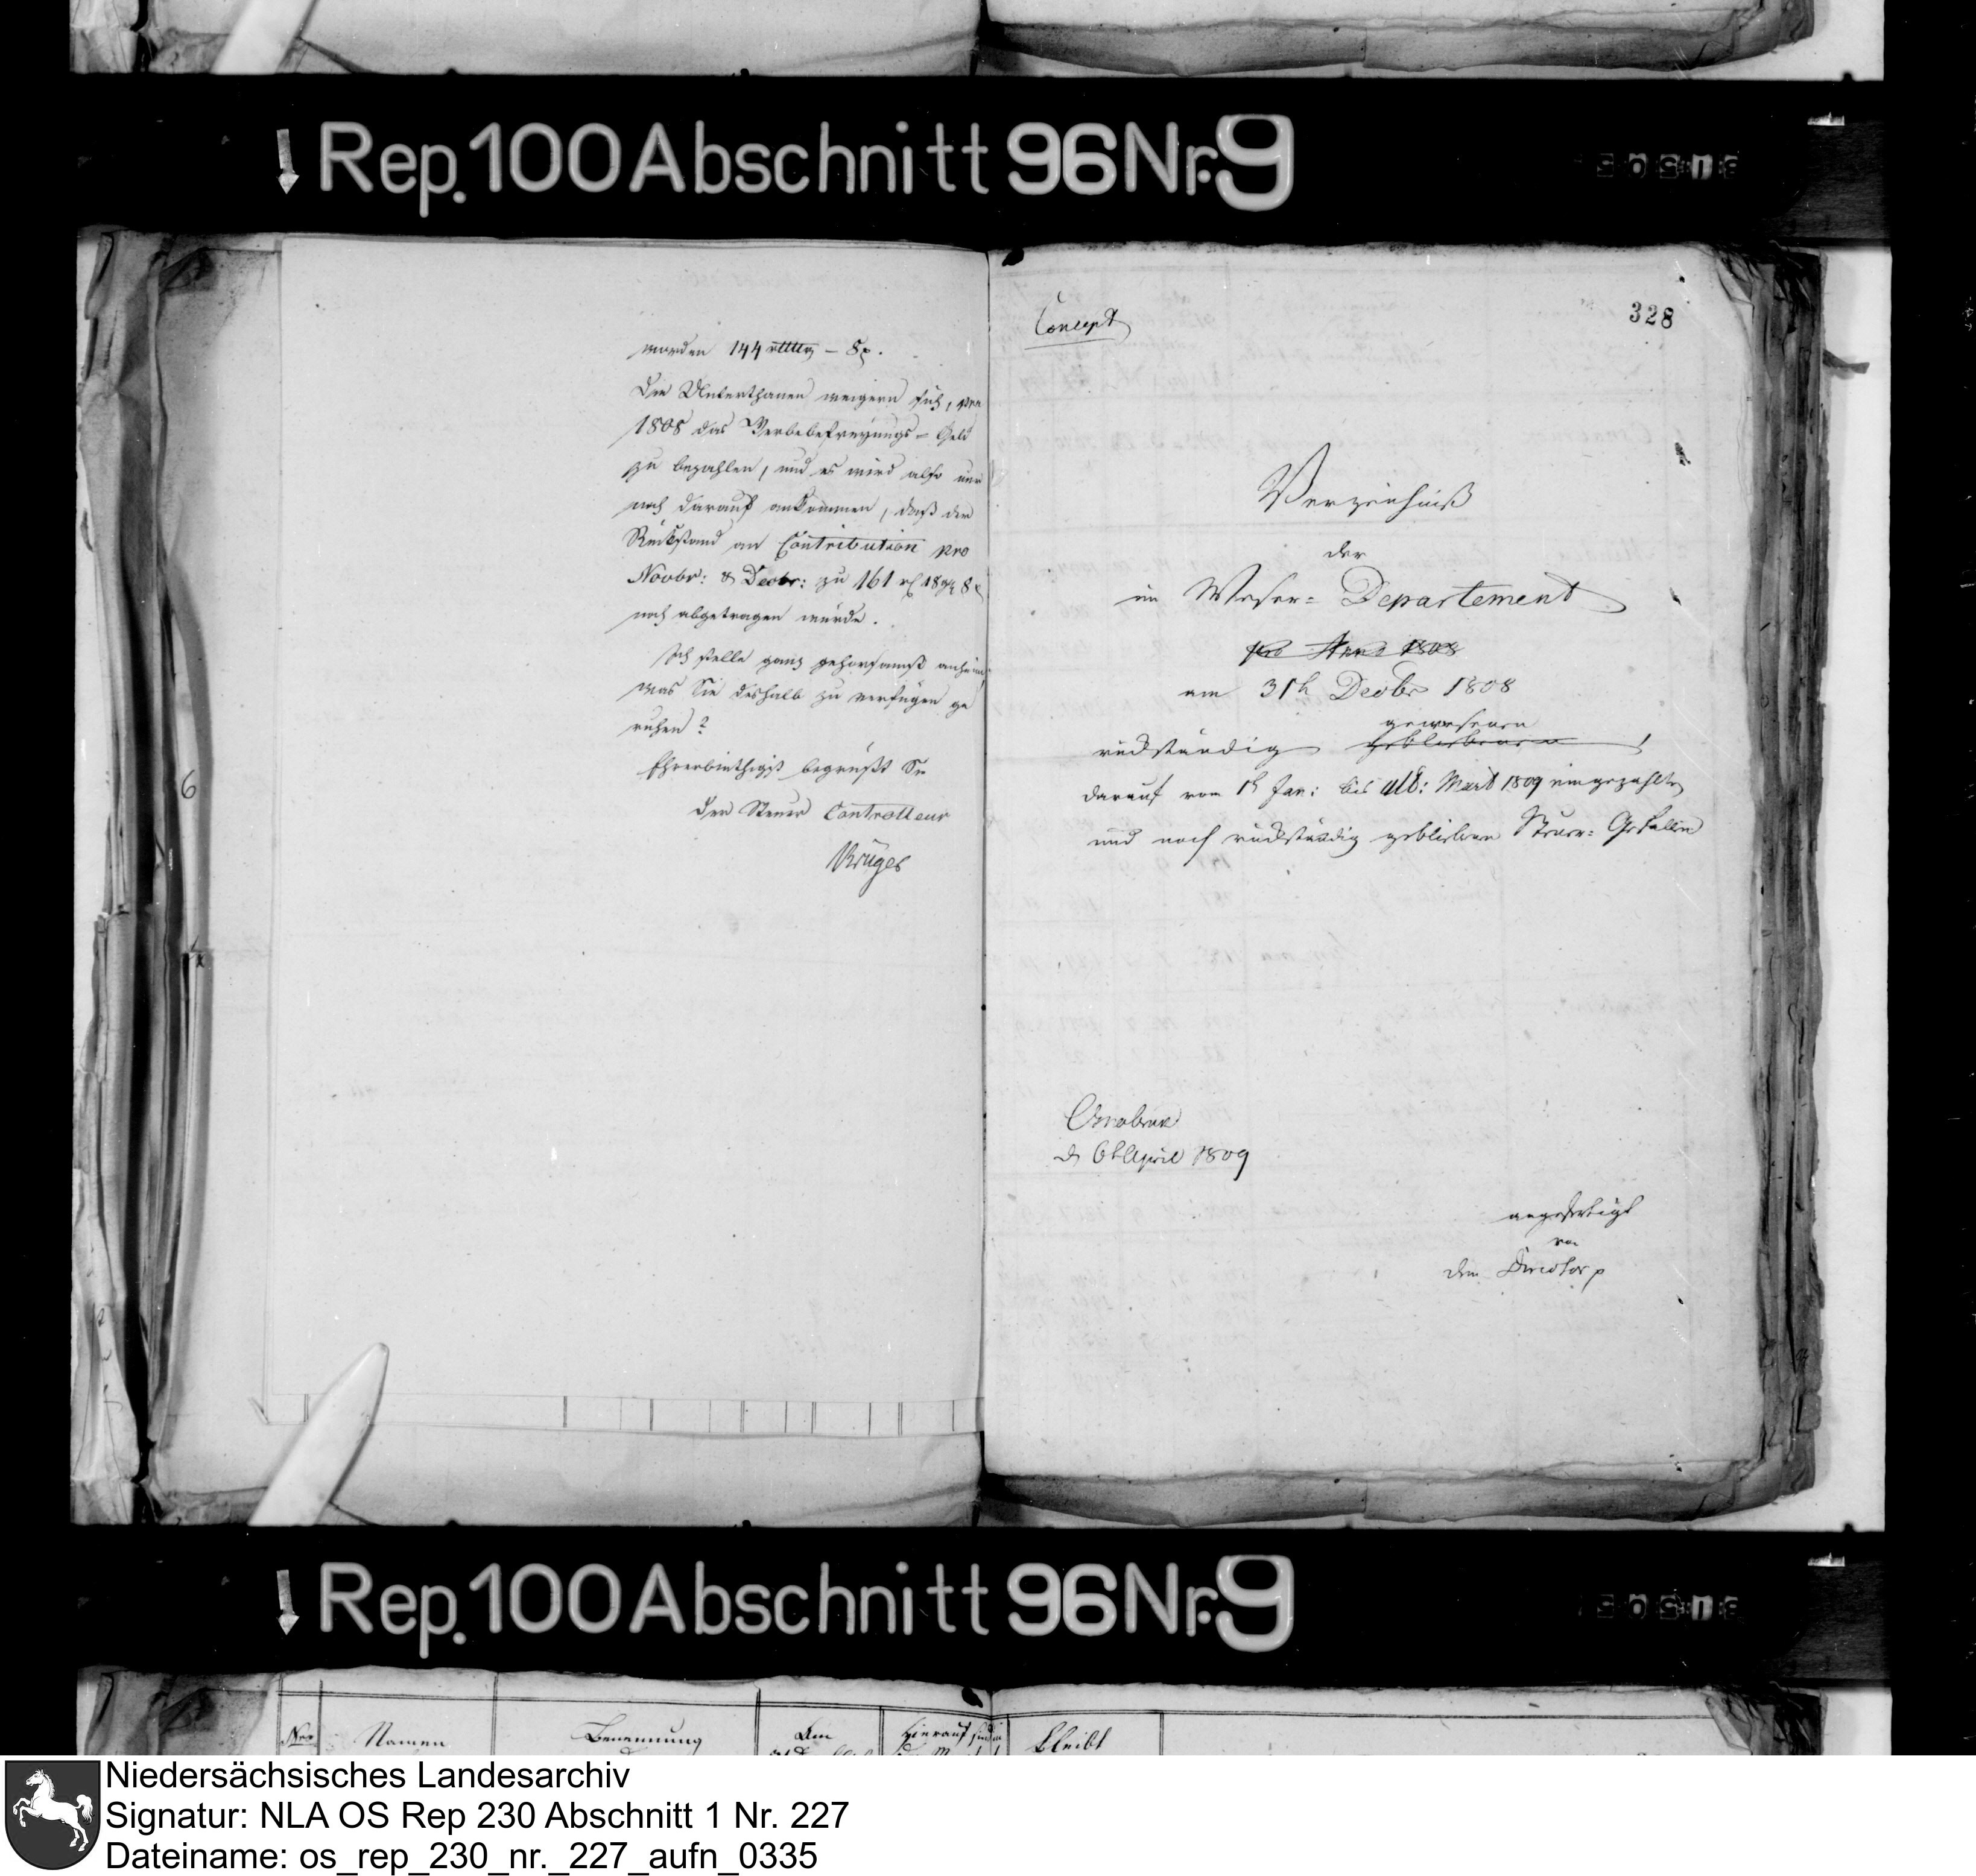 Rep. 100 Abschnitt 96 Nr. 9
worden 144 – 8
Die Unterthanen weigern sich, pro
1808 das Werbebefreyungs-Geld
zu bezahlen, und es wird also nur
noch darauf ankommen, daß der
Rückstand an Contribution pro
Novbr: & Decbr: zu 161 18 8
noch abgetragen würde.
Ich stelle ganz gehorsamst anheim,
was Sie deshalb zu verfügen ge
ruhen?
Ehrerbiethigst begrüßt Sie
Der Steuer Controlleur
Krüger
6
Concept
328
Verzeichniß
der
im Weser- Departement
pro Anno 1808
am 31t Decbr 1808
gewesenen
rückständig gebliebenen,
darauf vom 1t Jan: bis ult: Mart 1809 eingezahlten
und noch rückständig gebliebenen Steuer- Gefälle
Osnabrück
d 6t April 1809
angefertigt
von
dem Director
Rep. 100 Abschnitt 96 Nr. 9
Nro Namen Benennung Am Hierauf sind Bleibt
Niedersächsisches Landesarchiv
Signatur: NLA OS Rep 230 Abschnitt 1 Nr. 227
Dateiname: os_rep_230_nr._227_aufn_0335